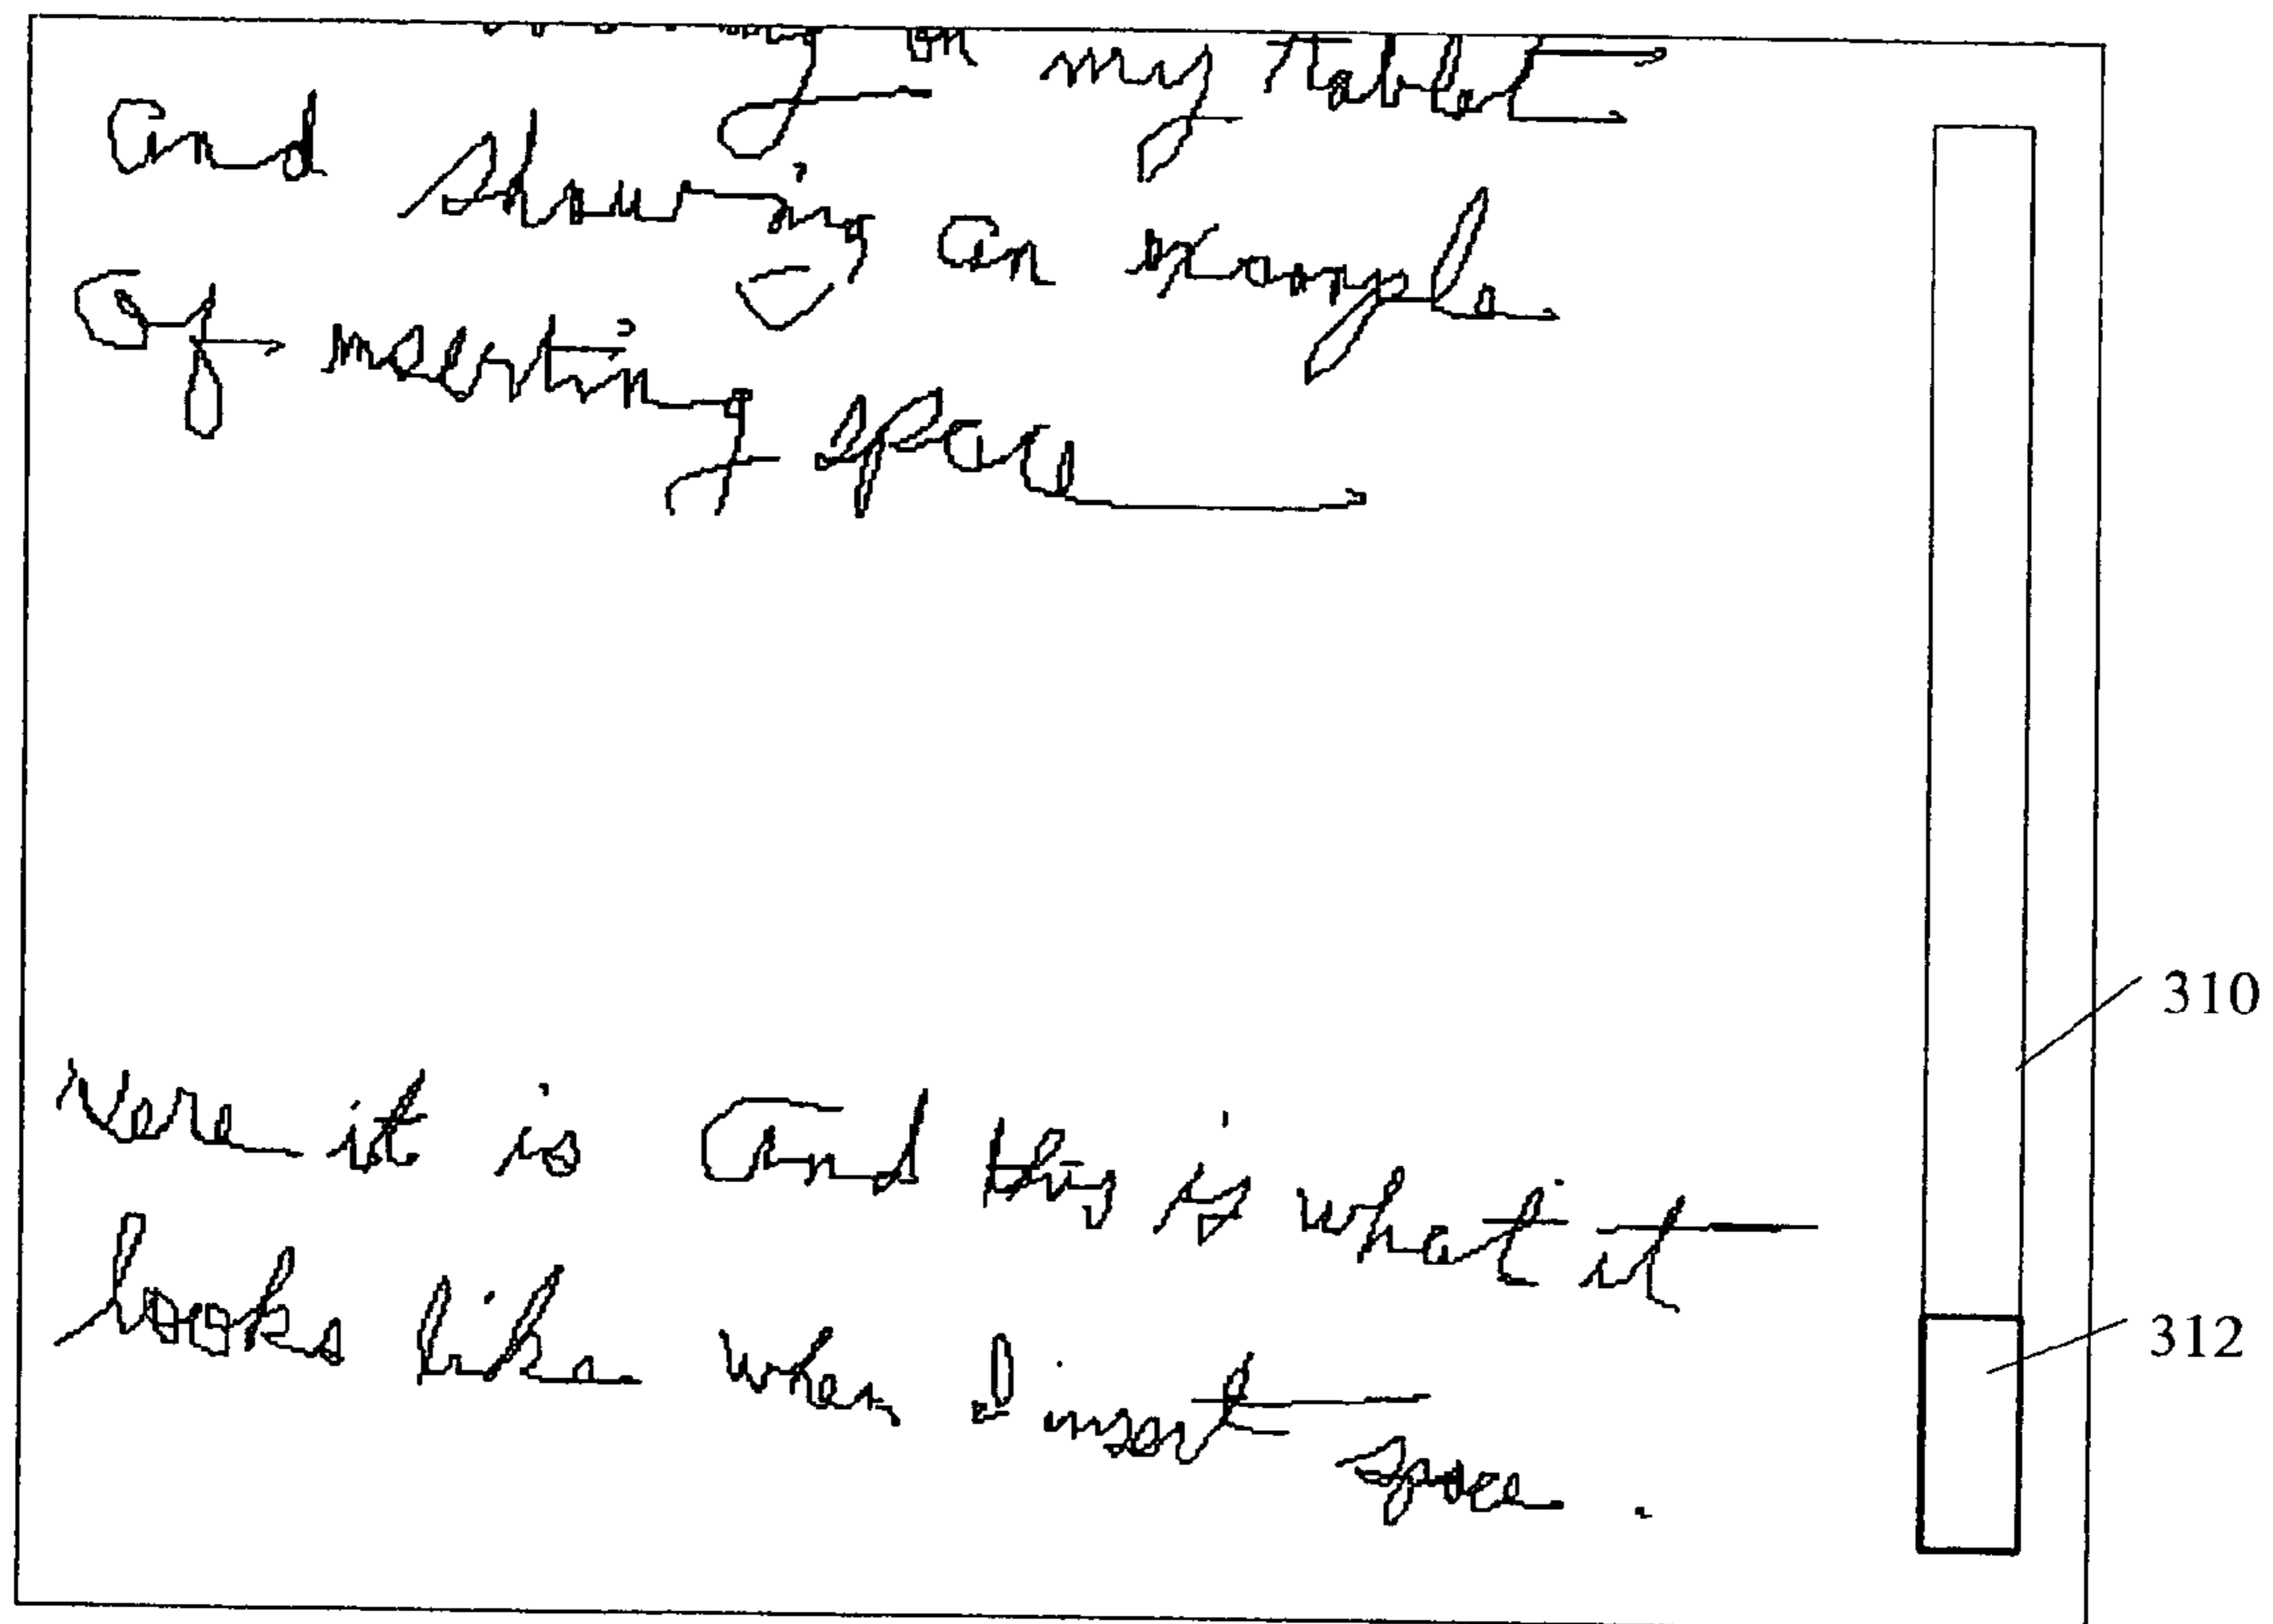 my tablet
and showing an example
of inserting space
310
here it is and this is what it
312
looks like when I insert space .